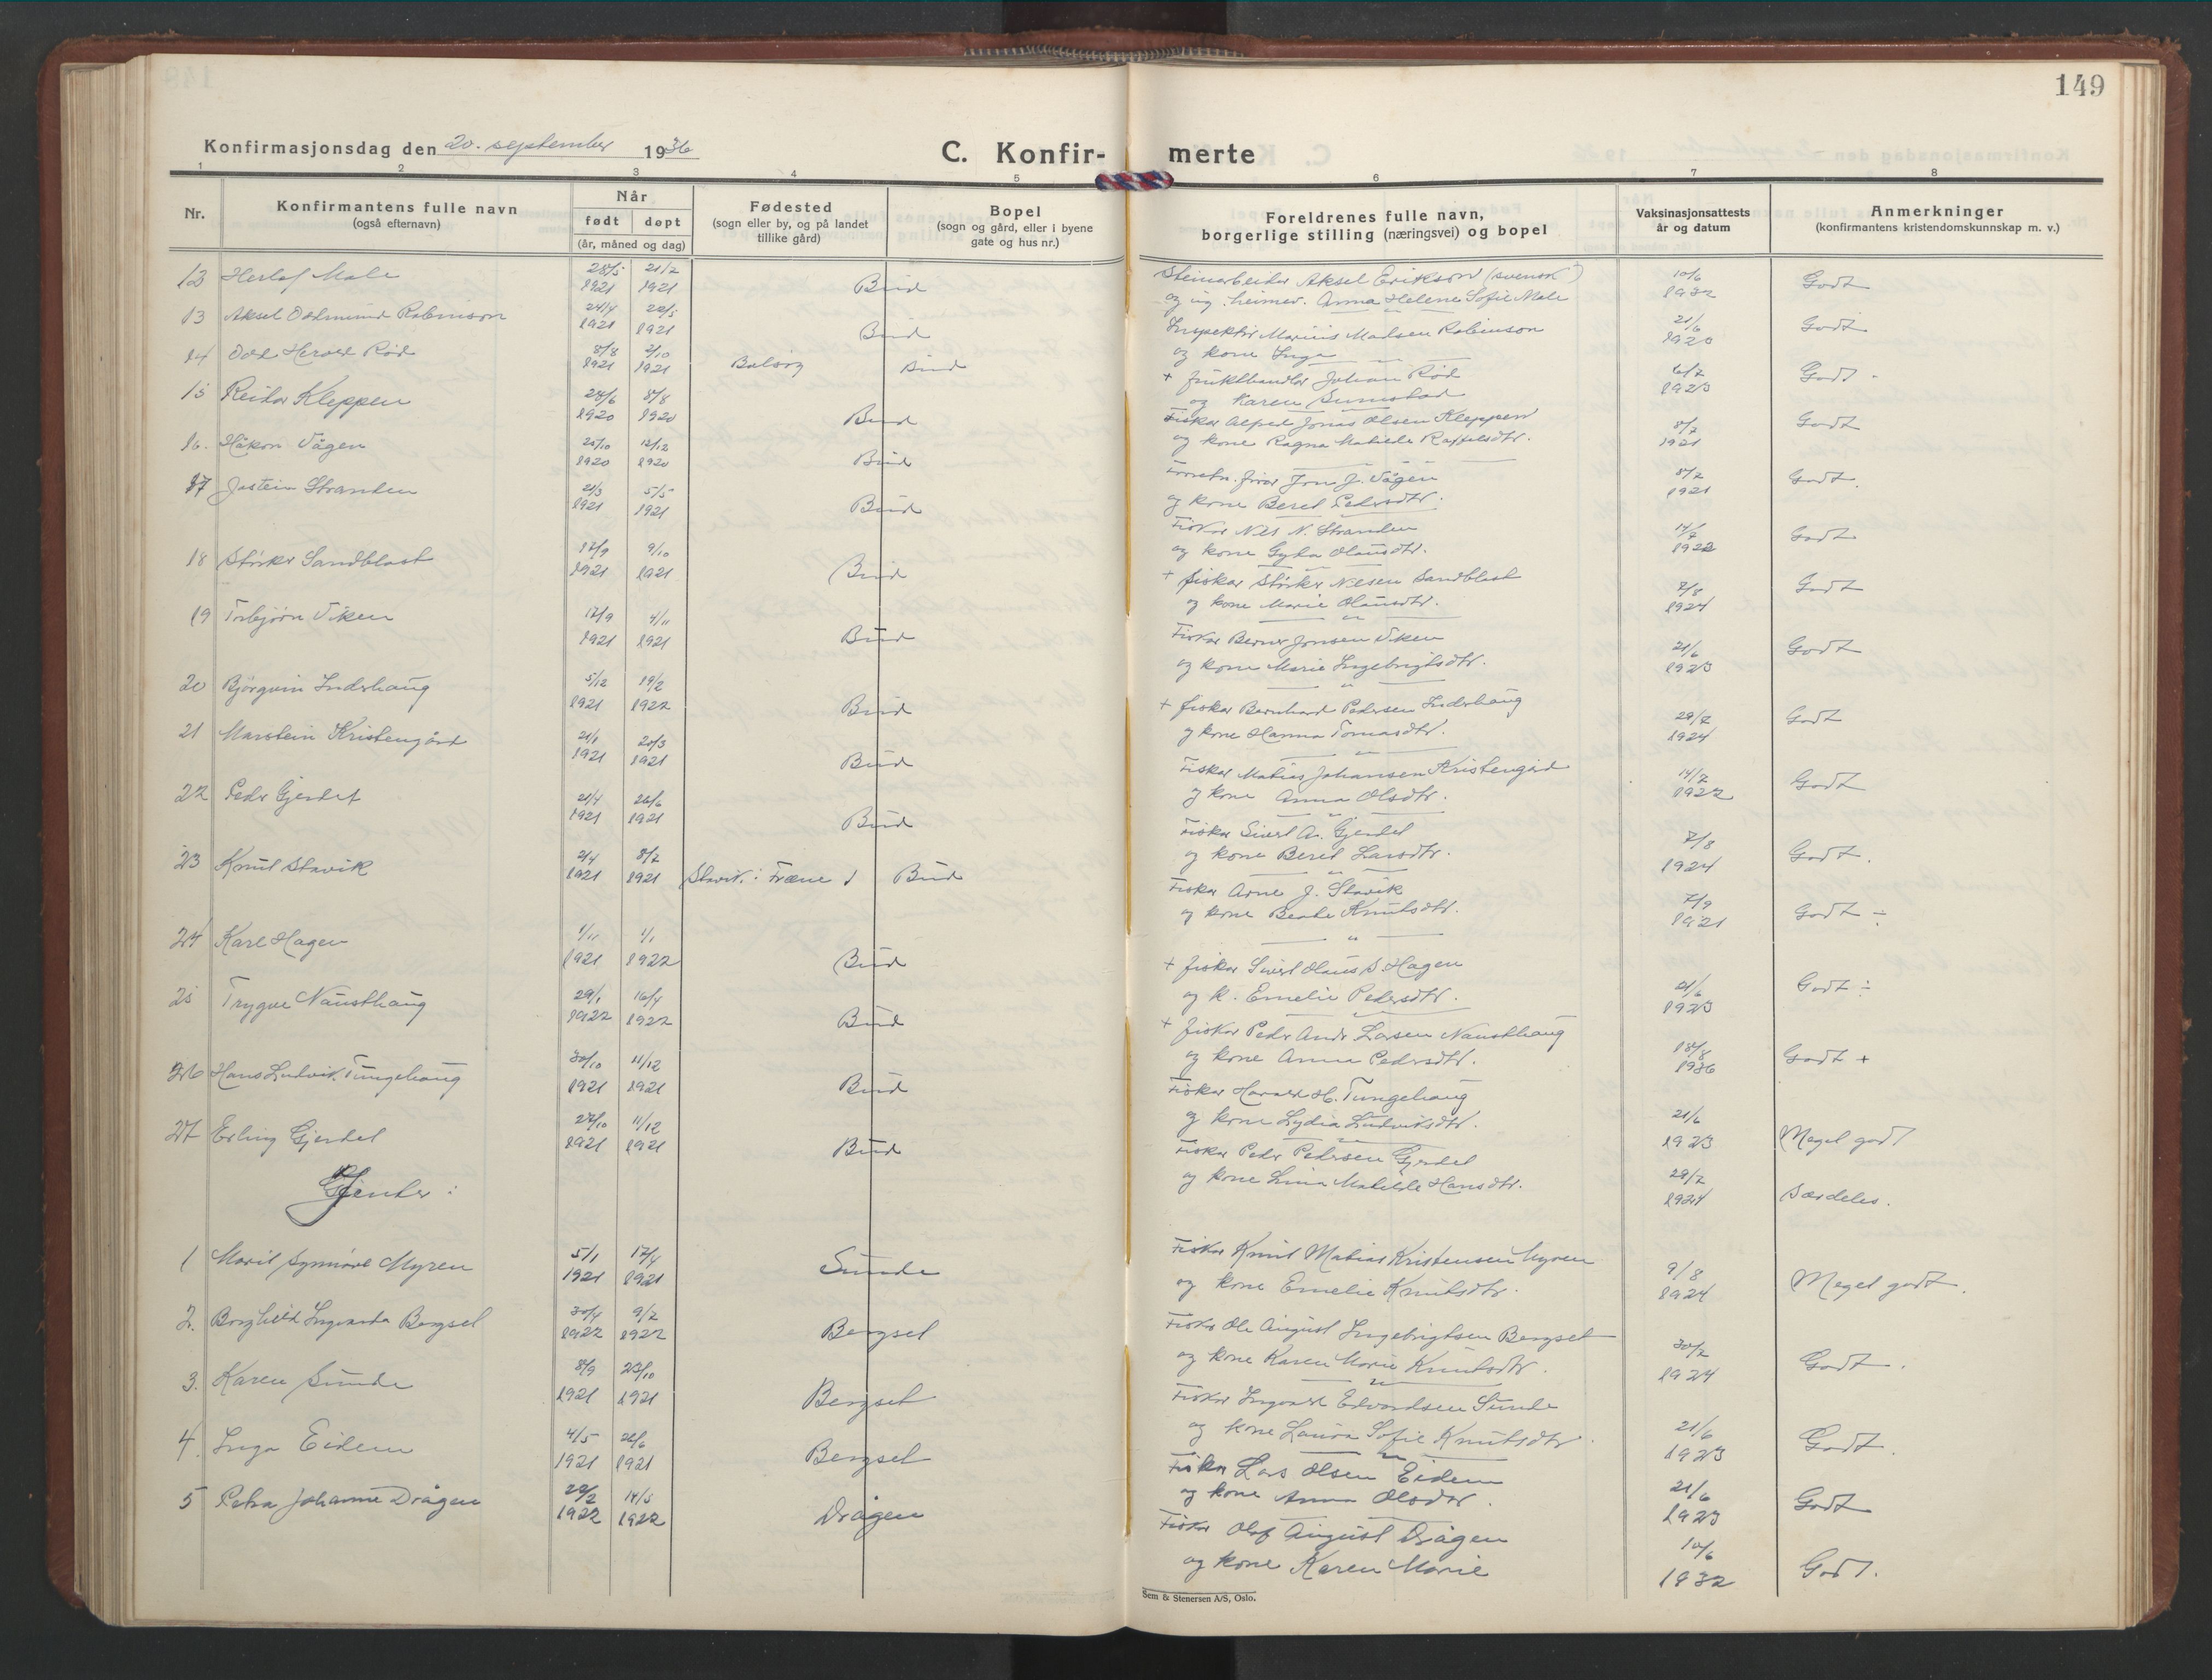 149
Konfirmasjonsdag den 20. september 1936
C. Konfir- merte
1 2 3 4 5 6 7 8
Nr.
Konfirmantens fulle navn
(også efternavn)
Når
født døpt
(år, måned og dag)
Fødested
(sogn eller by, og på landet
tillike gård)
Bopel
(sogn og gård, eller i byene
gate og hus nr.)
Foreldrenes fulle navn,
borgerlige stilling (næringsvei) og bopel
Vaksinasjonsattests
år og datum
Anmerkninger
(konfirmantens kristendomskunnskap m. v.)
13 Male 1921 21/2 1921 Bud Steinarbeider Aksel Erikson (svensk) 10/6 1932 Godt
og ug. heimev. Anna Helene Sofie Male
13 Aksel Oddmund Robinson 24/4 1921 22/5 1921 Bud Inspektør Marius Madsen Robinson 21/6 1920 Godt
og kone Inga
14 Odd Herold Rød 8/8 1921 2/10 1921 Bud + Johan Rød 6/7 1923 Godt
og Karen Sunnstad
15 Reidar Kleppen 28/6 1920 8/8 1920 Bud Fisker Alfred Jonas Olsen Kleppen 8/7 1921 Godt
og kone Ragna Matilde
16. Håkon Vågen 25/10 1920 12/12 1920 Bud Jon J. Vågen 8/7 1921 Godt.
og kone Beret Pedersdtr.
17 Jostein Stranden 21/3 1921 5/5 1921 Bud Fisker Nils N. Stranden 14/7 1922 Godt
og kone Gyda Olausdtr.
18 Størker Sandblåst 17/9 1921 9/10 1921 Bud + fisker Størker Nilsen Sandblåst 7/8 1924 Godt
og kone Marie Olausdtr.
19 Torbjørn Viken 17/9 1921 4/11 1921 Bud Fisker Berner Jonsen Viken 21/6 1923 Godt
og kone Marie Ingebrigtsdtr.
20 Bjørgvin Inderhaug 5/12 1921 19/2 1922 Bud + fisker Bernhard Pedersen Inderhaug 29/7 1924 Godt
og kone Hanna Tomasdtr.
21 Marstein Kristengård 21/1 1921 20/3 1921 Bud Fisker Matias Johansen Kristengård 14/7 1922 Godt
og kone Anna Olsdtr.
22 Peder Gjerdet 21/4 1921 26/6 1921 Bud Fisker Sivert A. Gjerdet 7/8 1924 Godt.
og kone Beret Larsdtr.
23 Knut Stavik 2/4 1921 8/7 1921 Stavik i Fræne Bud Fisker Arne J. Stavik 7/9 1921 Godt ÷
og kone Beate Knutsdtr.
24 Karl Hagen 1/11 1921 1/1 1922 Bud + fisker Sivert Olaus S. Hagen 21/6 1923 Godt ÷
og k. Emelie Pedersdtr.
25 Trygve Nausthaug 29/1 1922 16/4 1922 Bud + fisker Peder Andr. Larsen Nausthaug 18/8 1936 Godt +
og kone Anna Pedersdtr.
26 Hans Ludvik Tungehaug 30/10 1921 11/12 1921 Bud Fisker Harald H. Tungehaug 21/6 1923 Meget godt
og kone Lydia Ludviksdtr.
27 Erling Gjerdet 27/10 1921 11/12 1921 Bud Fisker Peder Pedersen Gjerdet 29/7 1924 Særdeles.
og kone Lina Matilde Hansdtr.
Gjenter:
1 Marit Synnøve Myren 5/1 1921 17/4 1921 Sunde Fisker Knut Matias Kristensen Myren 9/8 1924 Meget godt.
og kone Emelie Knutsdtr.
2. Borghild Ingvarda Bergset 30/4 1922 9/7 1922 Bergset Fisker Ole August Ingebrigtsen Bergset 30/7 1924 Godt.
og kone Karen Marie Knutsdtr.
3. Karen Sunde 8/9 1921 23/10 1921 Bergset Fisker Ingvald Edvardsen Sunde 21/6 1923 Godt.
og kone Laura Sofie Knutsdtr.
4. Inga Eidem 4/5 1921 26/6 1921 Bergset Fisker Lars Olsen Eidem 21/6 1923 Godt
og kone Anna Olsdtr.
5 Petra Johanne Drågen 22/2 1922 14/5 1922 Drågen Fisker Olaf August Drågen 10/6 1932 Godt.
og kone Karen Marie
Sem & Stenersen A/S, Oslo.